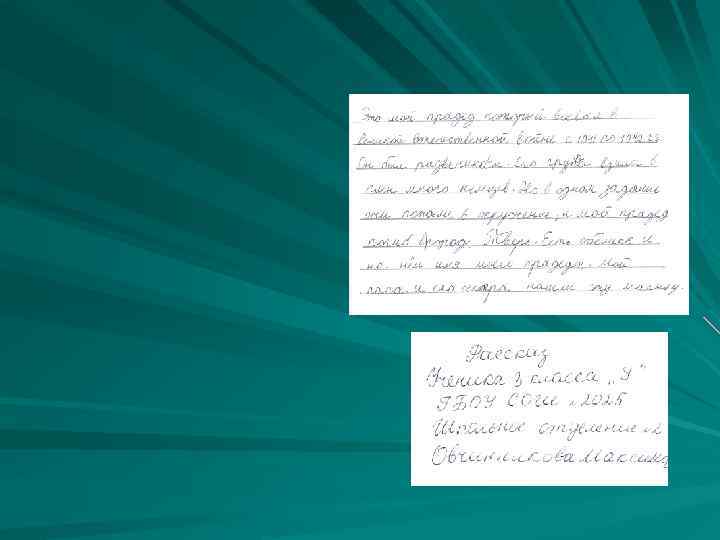 Это мой прадед который воевал в
Великой Отечественной войне с 1941 по 1942 гг.
Он был разведчиком. Его взяли в
плен много немцев. Но в одном задание
они попали в окружение, и мой прадед
погиб город Тверь. Есть обелиск и
на нём имя моего прадеда. Мой
папа и его сестра нашли эту могилу.
Рассказ
Ученика 3 класса „У"
ГБОУ СОШ №2025
Школьное отделение №2
Овчинникова Максима